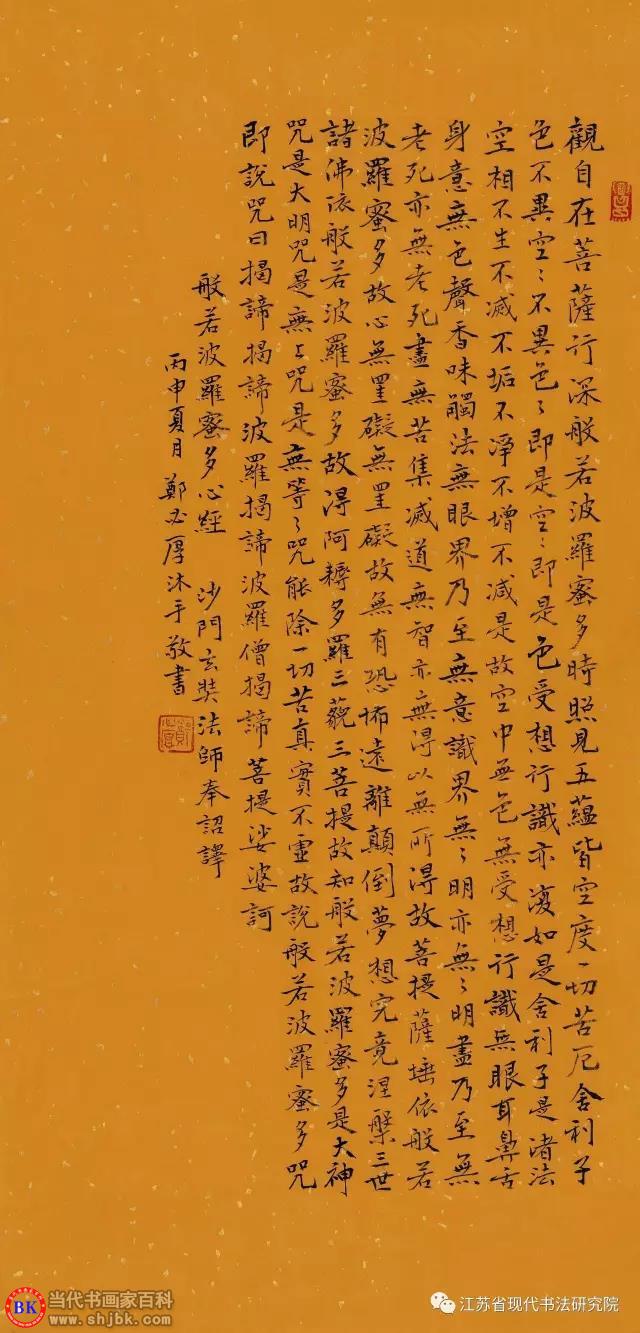 觀自在菩薩行深般若波羅蜜多時照見五蘊皆空度一切苦厄舍利子
色不異空〻不異色〻即是空〻即是色受想行識亦復如是舍利子是諸法
空相不生不滅不垢不淨不增不減是故空中無色無受想行識無眼耳鼻舌
身意無色聲香味觸法無眼界乃至無意識界無〻明亦無〻明盡乃至無
老死亦無老死盡無苦集滅道無智亦無得以無所得故菩提薩埵依般若
波羅蜜多故心無罣礙無罣礙故無有恐怖遠離顛倒夢想究竟涅槃三世
諸佛依般若波羅蜜多故得阿耨多羅三藐三菩提故知般若波羅蜜多是大神
咒是大明咒是無上咒是無等〻咒能除一切苦真實不虛故說般若波羅蜜多咒
即說咒曰揭諦揭諦波羅揭諦波羅僧揭諦菩提娑婆訶
般若波羅蜜多心經 沙門玄奘法師奉詔譯
丙申夏月鄭必厚沐手敬書
BK
当代书画家百科
www.shjbk.com
江苏省现代书法研究院